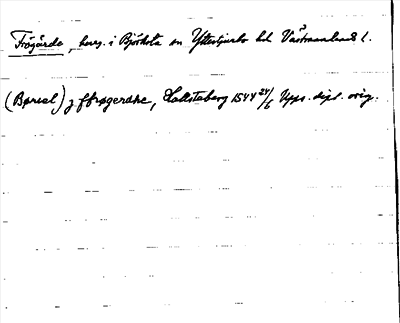 Frögärde, herg. i Björksta sn Yttertjurbo hd Västmanland l.
(Børiel) j ffrøgerdhe, Hallstaberg 1544 24/6 Upps. dipl. orig.